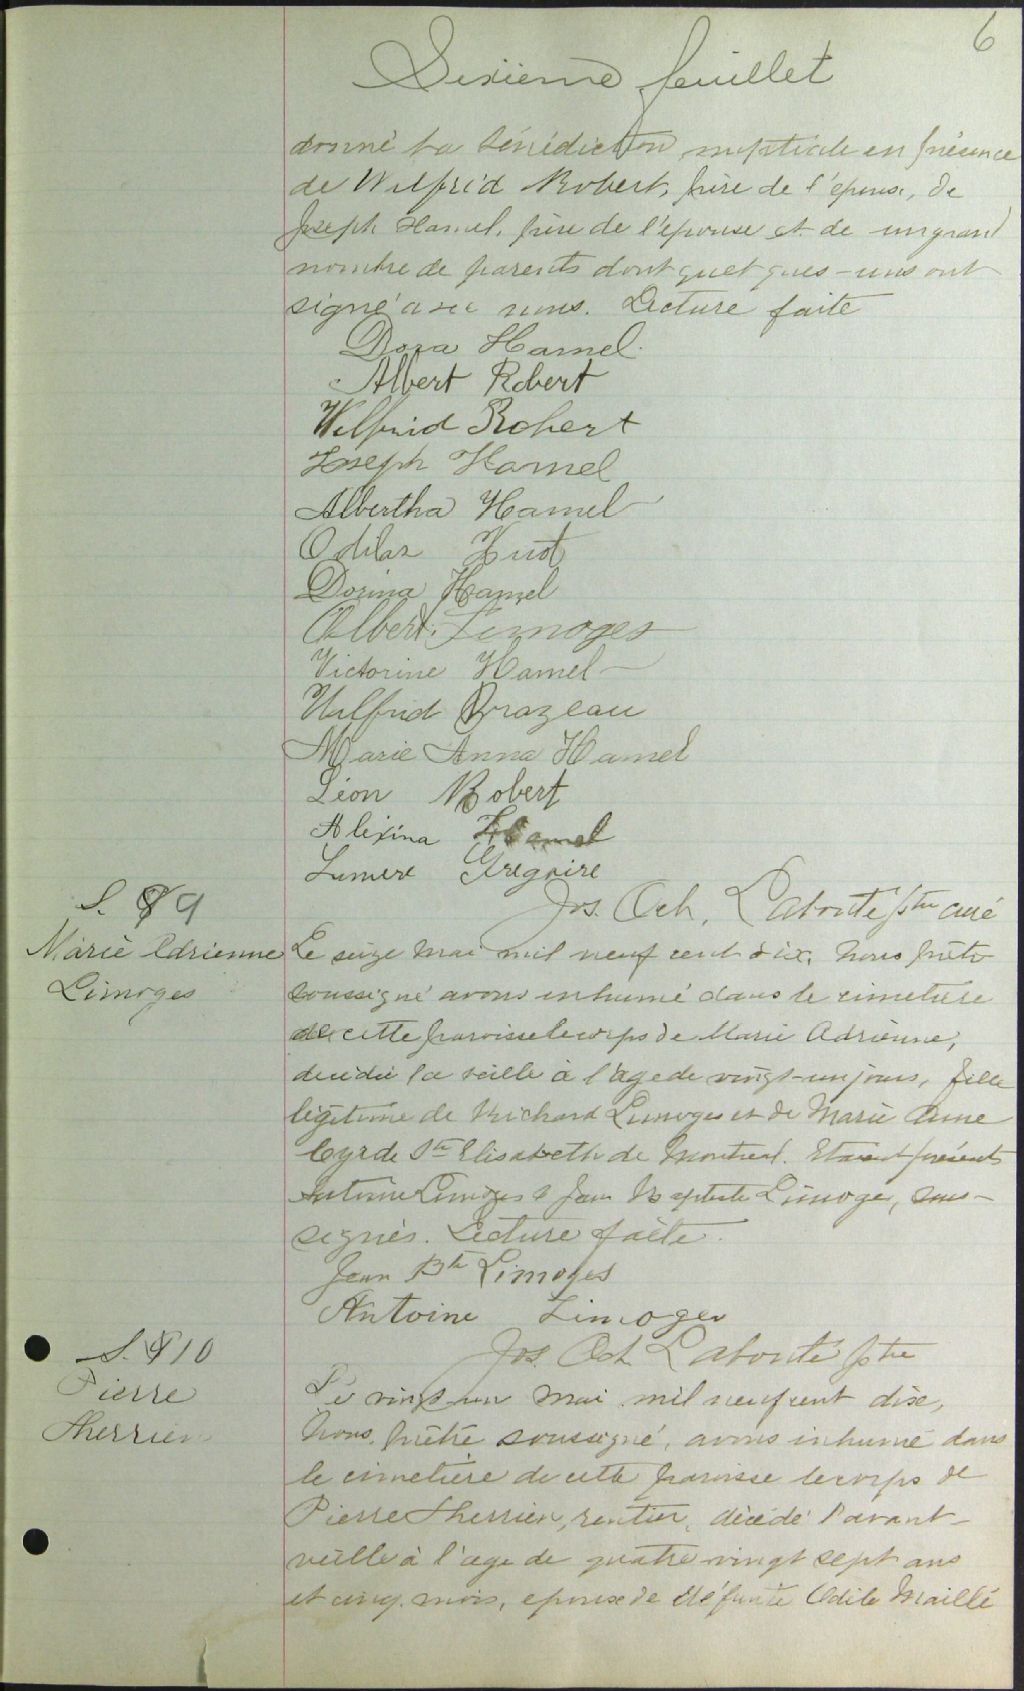 6
Sixième feuillet
donné la bénédiction nuptiale en présence
de Wilfrid Robert, frère de l'epoux, de
Joseph Hamel, frère de l'épouse et de un grand
nombre de parents dont quelques-uns ont
signé avec nous. Lecture faite
Dora Hamel
Albert Robert
Wilfrid Robert
Joseph Hamel
Albertha Hamel
Odilas Huot
Dorina Hamel
Albert Limoges
Victorine Hamel
Wilfrid Brazeau
Marie Anna Hamel
Léon Robert
Alexina Hamel
Gregoire
Jos. Och. Laborité ptre curé
S. 9
Marie Adrienne
Limoges
Le seize mai mil neuf cent dix, nous prêtre
soussigné avons inhumé dans le cimetière
de cette paroisse le corps de Marie Adrienne,
décédée la veille à l'age de vingt-un jours, fille
légitime de Richard Limoges et de Marie Anne
Cyr de Ste Elisabeth de Montreal. Etaient présents
Antoine Limoges & Jean Baptiste Limoges, sous-
signés. Lecture faite.
Jean Bte Limoges
Antoine Limoges
Jos. Och Laborité ptre
S. 10
Pierre
Therrien
Le vingt-un mai mil neuf cent dix,
Nous, prêtre soussigné, avons inhumé dans
le cimetière de cette paroisse le corps de
Pierre Therrien, rentier, décédé l'avant-
veille à l'age de quatre-vingt sept ans
et cinq mois, epoux de défunte Odile Maillé